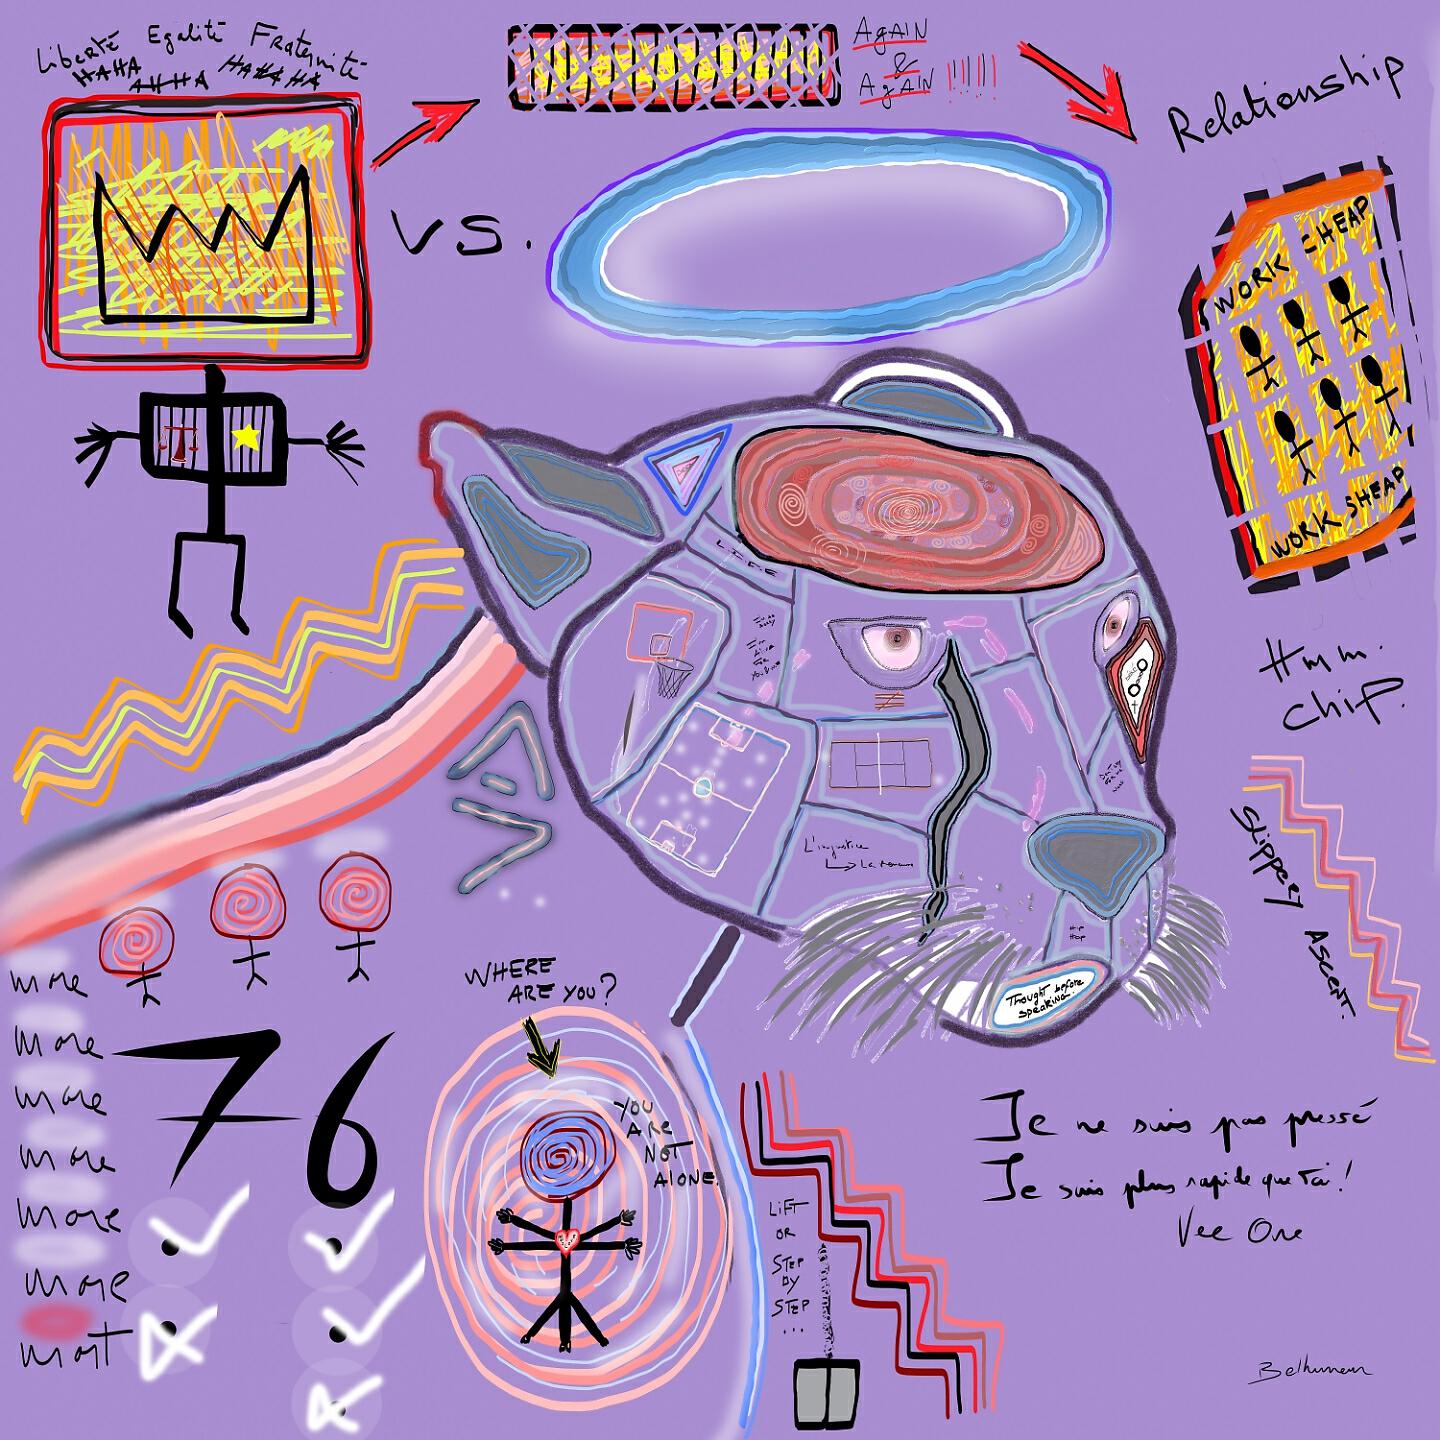 Liberté Egalité Fraternité
HAHA AHHA HAHAHA
AgAIN
&
AgAIN !!!!!
Relationship
VS.
WORK CHEAP
WORK SHEAP
Hmm.
chip.
LIFE
L'injustice
HIP
HOP
Thought before
speaking.
SLippERY ASCENT.
WHERE
ARE YOU?
YOU
ARE
NOT
ALONE.
more
more
more
more
more
more
most
76
LiFT
OR
STEP
BY
STEP
...
Je ne suis pas pressé
Je suis plus rapide que toi!
Vee One
Belhumeur